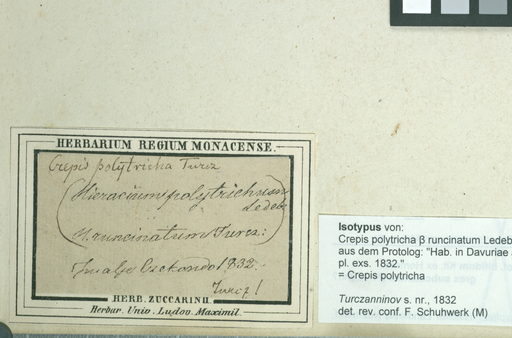 HERBARIUM REGIUM MONACENSE.
Crepis polytricha Turcz
(Hieracium polytrichum
Ledeb
H. runcinatum Turcz:)
1832.
Turcz!
HERB. ZUCCARINII.
Herbar. Univ. Ludov. Maximil.
Isotypus von:
Crepis polytricha β runcinatum Ledeb
aus dem Protolog: "Hab. in Davuriae
pl. exs. 1832."
= Crepis polytricha
Turczanninov s. nr., 1832
det. rev. conf. F. Schuhwerk (M)